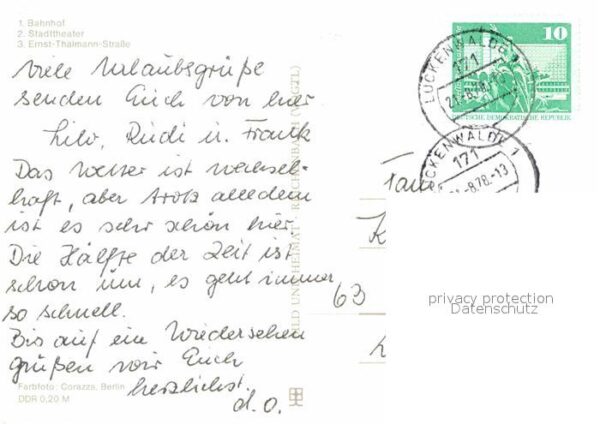 1. Bahnhof
2. Stadttheater
3. Ernst-Thälmann-Straße
Viele Urlaubsgrüße
senden Euch von hier
Lilo, Rudi u. Frank
Das Wetter ist wechsel-
haft, aber trotz alledem
ist es sehr schön hier.
Die Hälfte der Zeit ist
schon um, es geht immer
so schnell.
Bis auf ein Wiedersehen
grüßen wir Euch
herzlichst.
d. O.
Farbfoto: Corazza, Berlin
DDR 0,20 M
BILD UND HEIMAT · REICHENBACH (VOGTL)
10
DEUTSCHE DEMOKRATISCHE REPUBLIK
LUCKENWALDE 1
171
LUCKENWALDE 1
171
-8.78.-13
Fam
K
63
privacy protection
Datenschutz